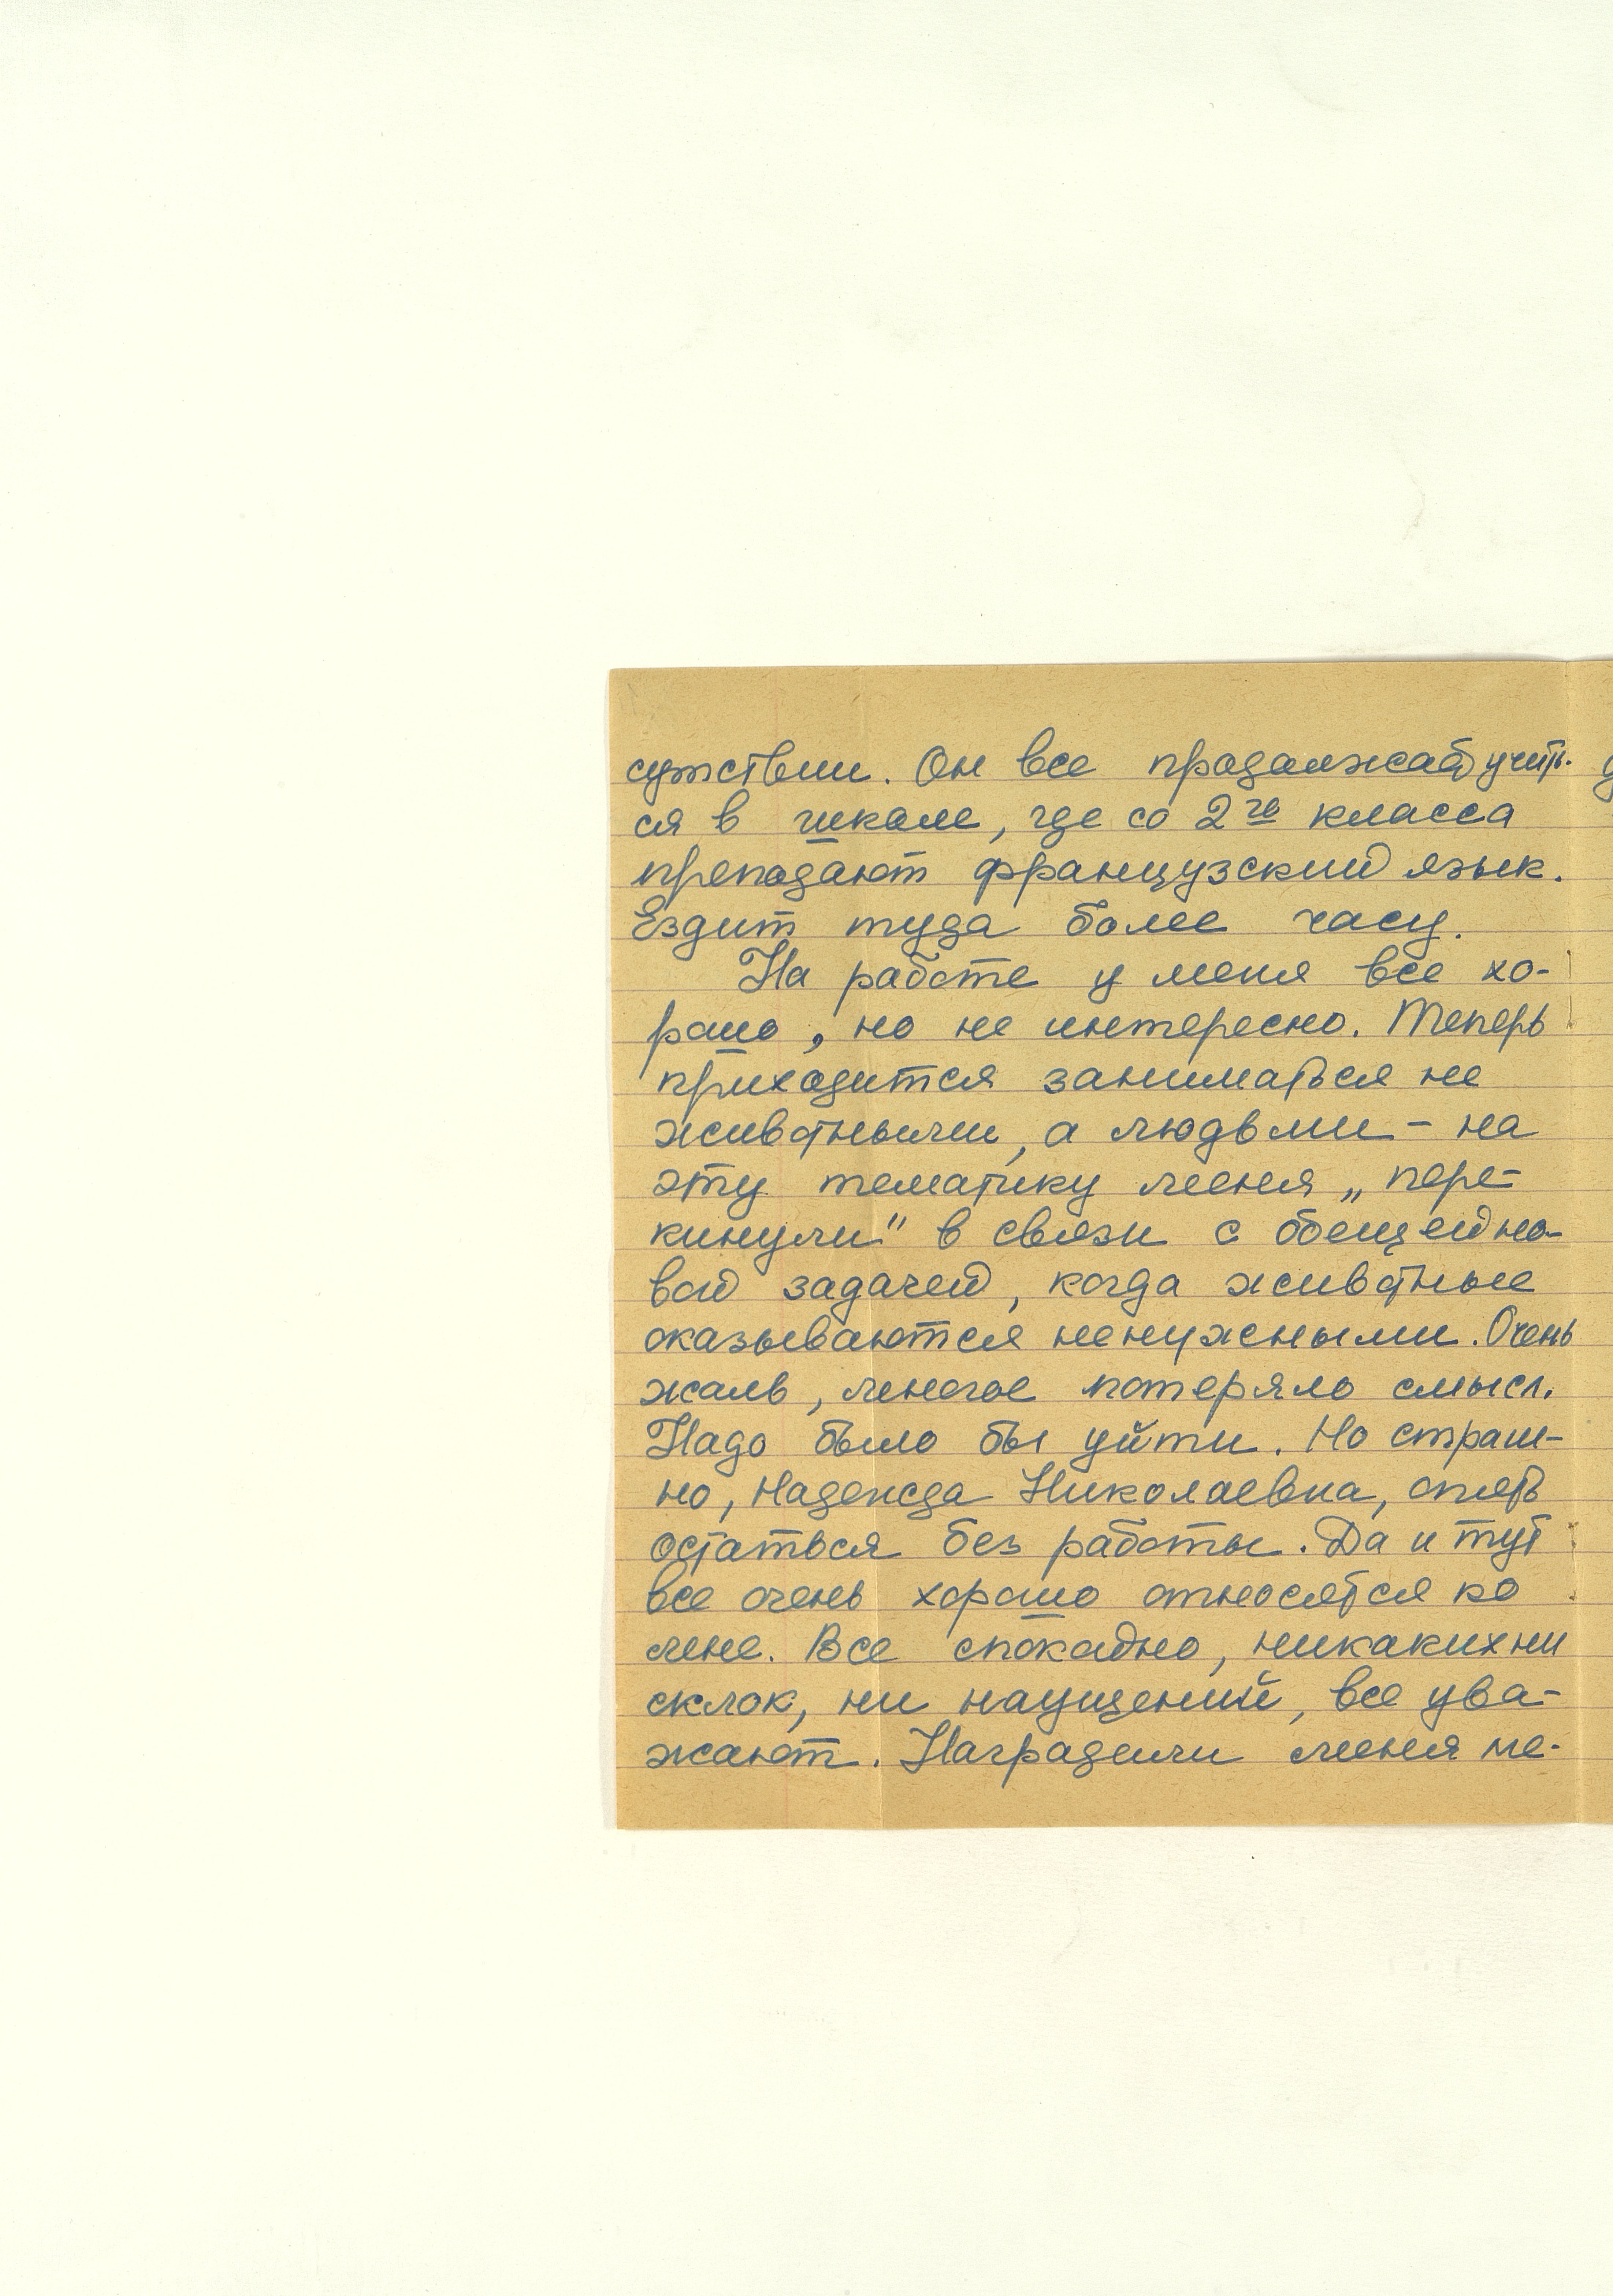 сутствии. Он все продолжает учить-
ся в школе, где со 2го класса
преподают французский язык.
Ездит туда более часу.
На работе у меня все хо-
рошо, но не интересно. Теперь
приходится заниматься не
животными, а людьми – на
эту тематику меня „пере-
кинули" в связи с общеино-
вой задачей, когда животные
оказываются ненужными. Очень
жаль, многое потеряло смысл.
Надо было бы уйти. Но страш-
но, Надежда Николаевна, опять
остаться без работы. Да и тут
все очень хорошо относятся ко
мне. Все спокойно, никаких ни
склок, ни наущений, все ува-
жают. Наградили меня ме-